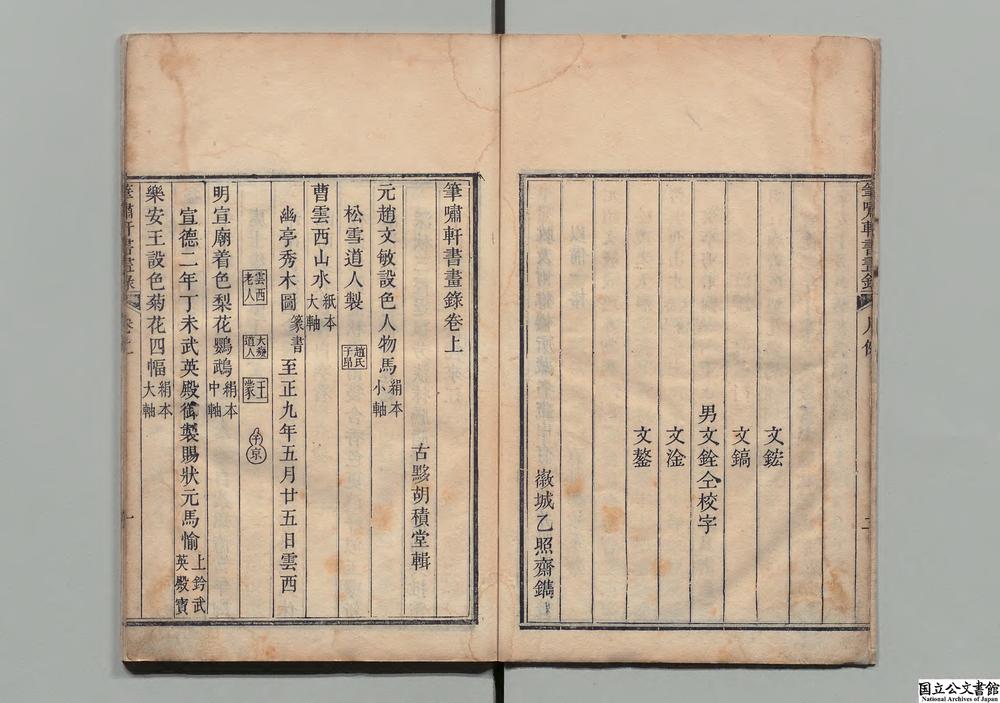 文鋐
文鎬
男文銓仝校字
文淦
文鏊
徽城乙照齋鐫
筆嘯軒書畫錄卷上
古黟胡積堂輯
元趙文敏設色人物馬絹本小軸
松雪道人製 趙氏子昂
曹雲西山水紙本大軸
幽亭秀木圖篆書至正九年五月廿五日雲西
雲西老人 大癡道人 王蒙 子京
明宣廟着色梨花鸚鵡絹本中軸
宣德二年丁未武英殿御製賜狀元馬愉上鈐武英殿寶
樂安王設色菊花四幅絹本大軸
筆嘯軒書畫錄
国立公文書館
National Archives of Japan